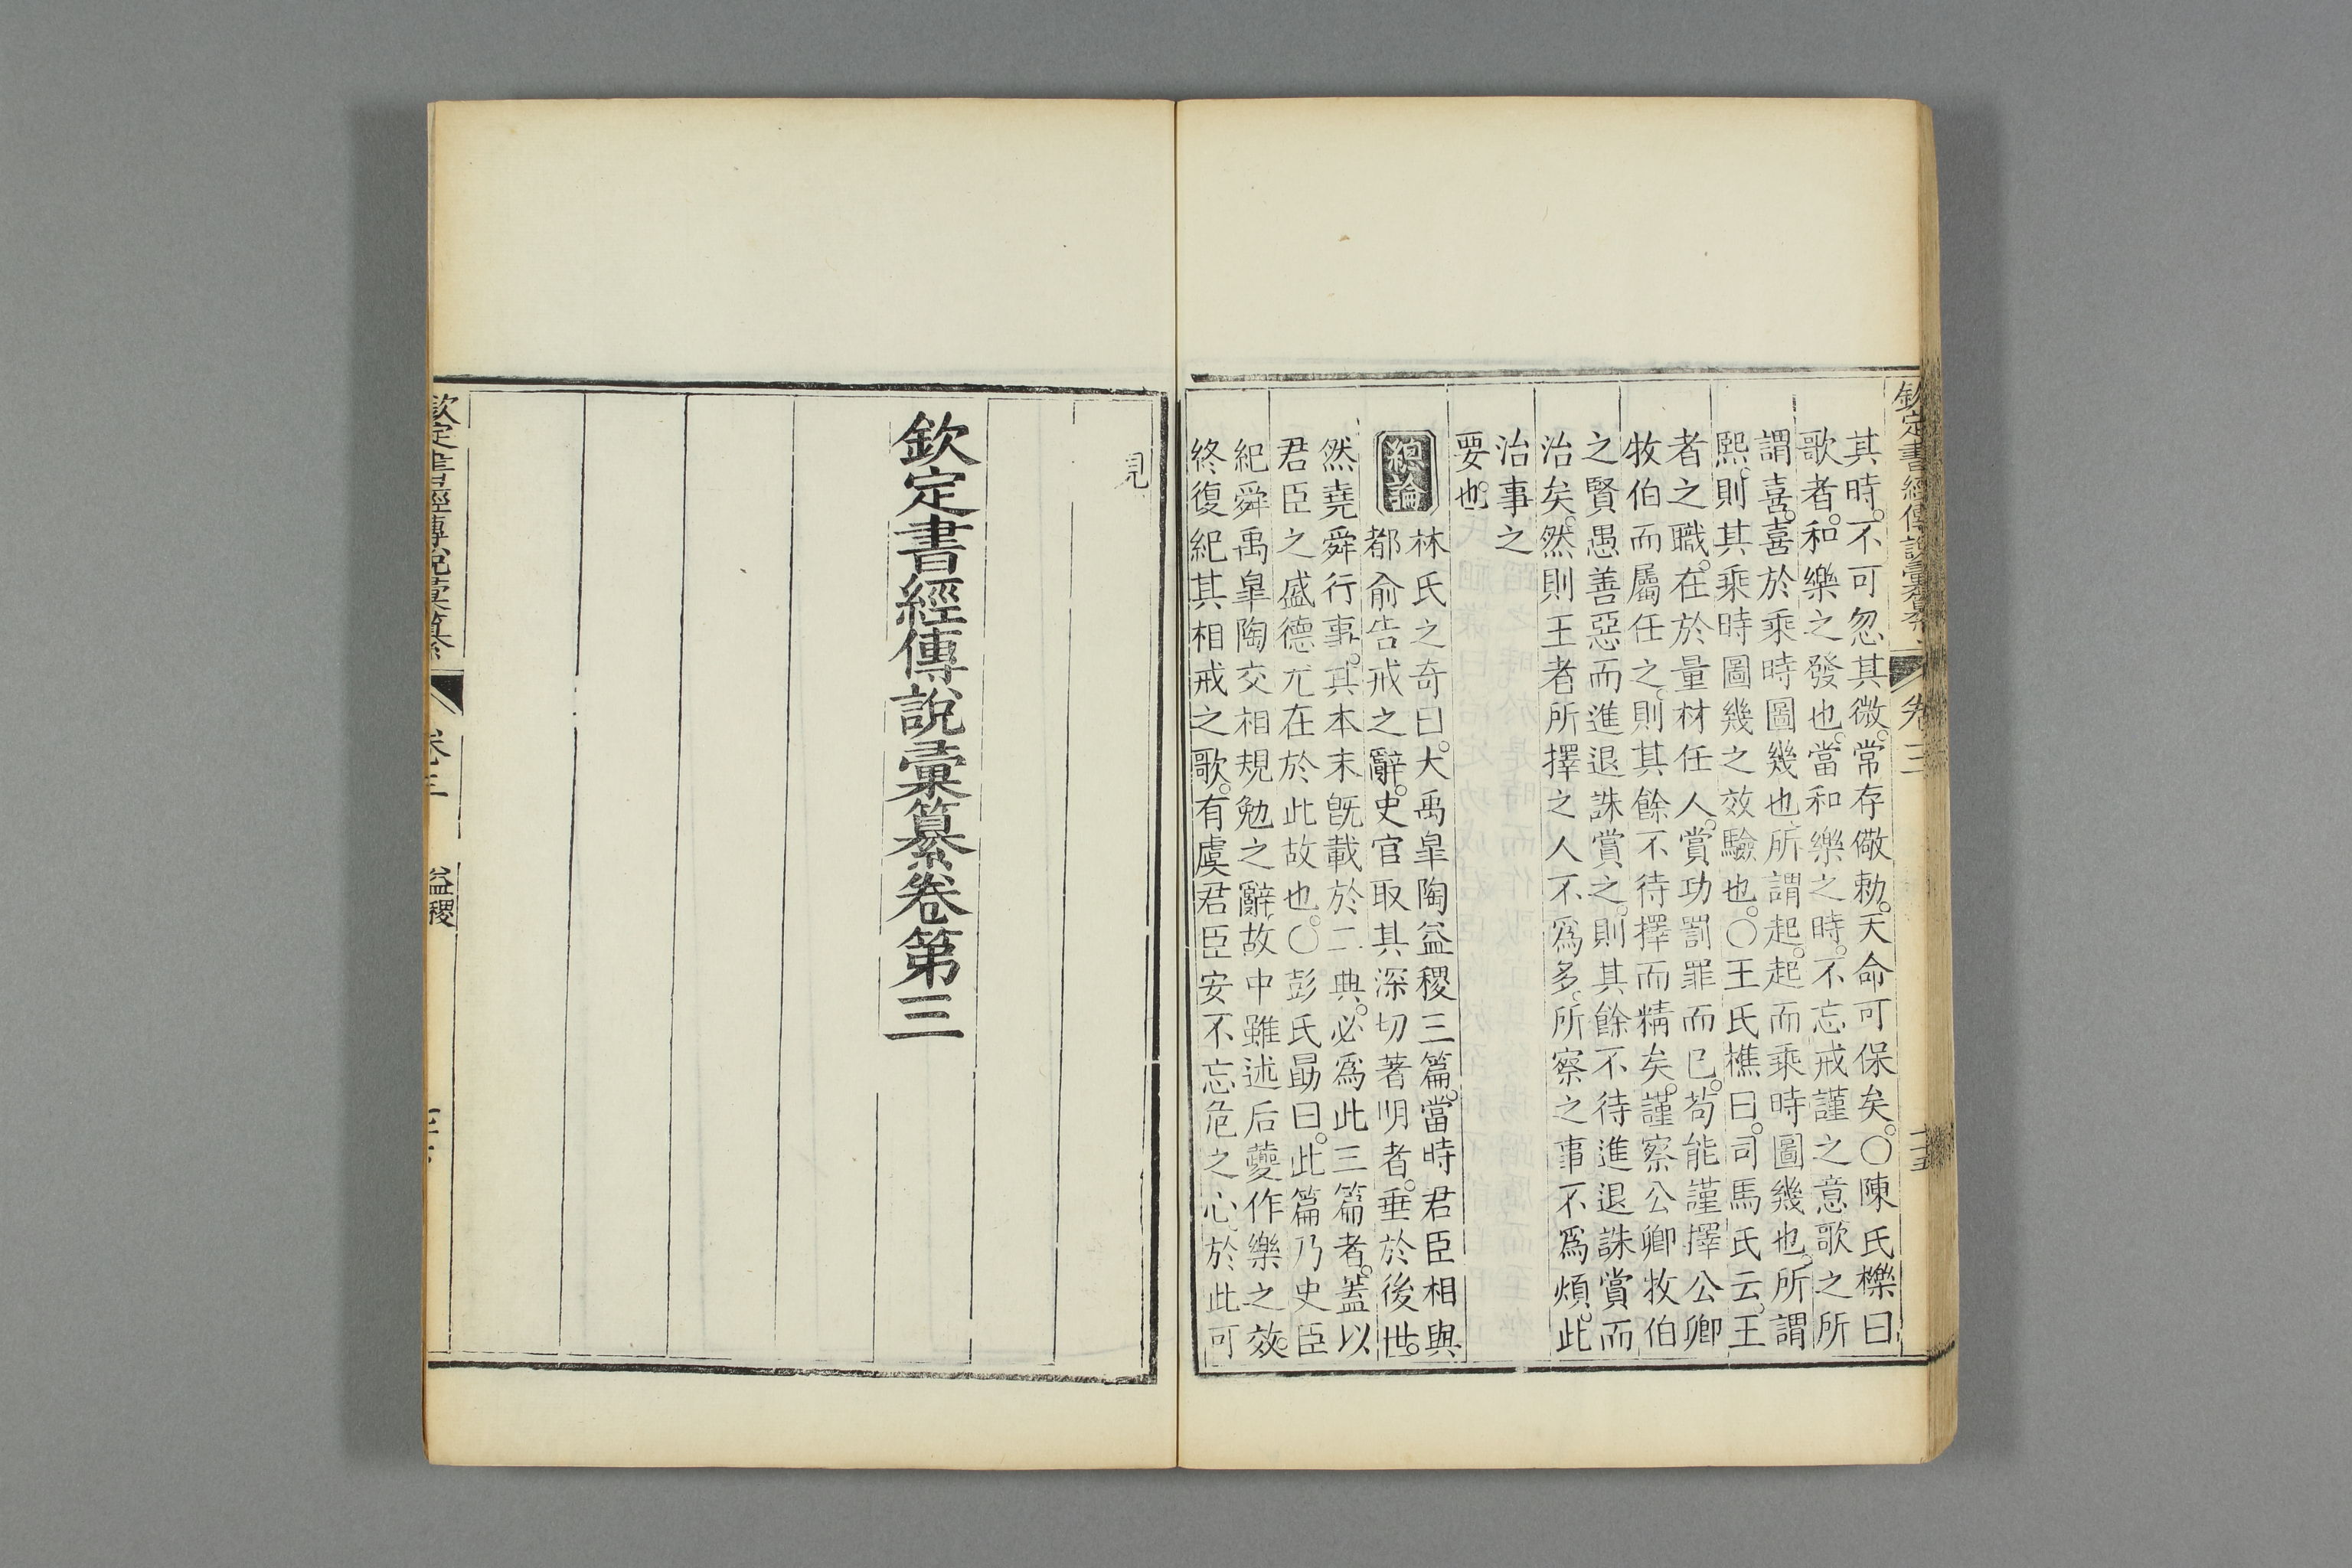 欽定書經傳說彙纂 卷三 二十五
其時。不可忽其微。常存儆勅。天命可保矣。○陳氏櫟曰
歌者。和樂之發也。當和樂之時。不忘戒謹之意歌之所
謂喜。喜於乘時圖幾也。所謂起。起而乘時圖幾也。所謂
熙。則其乘時圖幾之效驗也。○王氏樵曰。司馬氏云。王
者之職。在於量材任人。賞功罰罪而已。苟能謹擇公卿
牧伯而屬任之。則其餘不待擇而精矣。謹察公卿牧伯
之賢愚善惡而進退誅賞之。則其餘不待進退誅賞而
治矣。然則王者所擇之人不爲多。所察之事不爲煩。此
治事之
要也。
總論
林氏之奇曰。大禹皐陶益稷三篇。當時君臣相與
都俞告戒之辭。史官取其深切著明者。垂於後世。
然堯舜行事。其本末旣載於二典。必爲此三篇者。蓋以
君臣之盛德尤在於此故也。○彭氏勗曰。此篇乃史臣
紀舜禹皐陶交相規勉之辭。故中雖述后夔作樂之效。
終復紀其相戒之歌。有虞君臣安不忘危之心。於此可
見
欽定書經傳說彙纂卷第三
欽定書經傳說彙纂 卷三 益稷